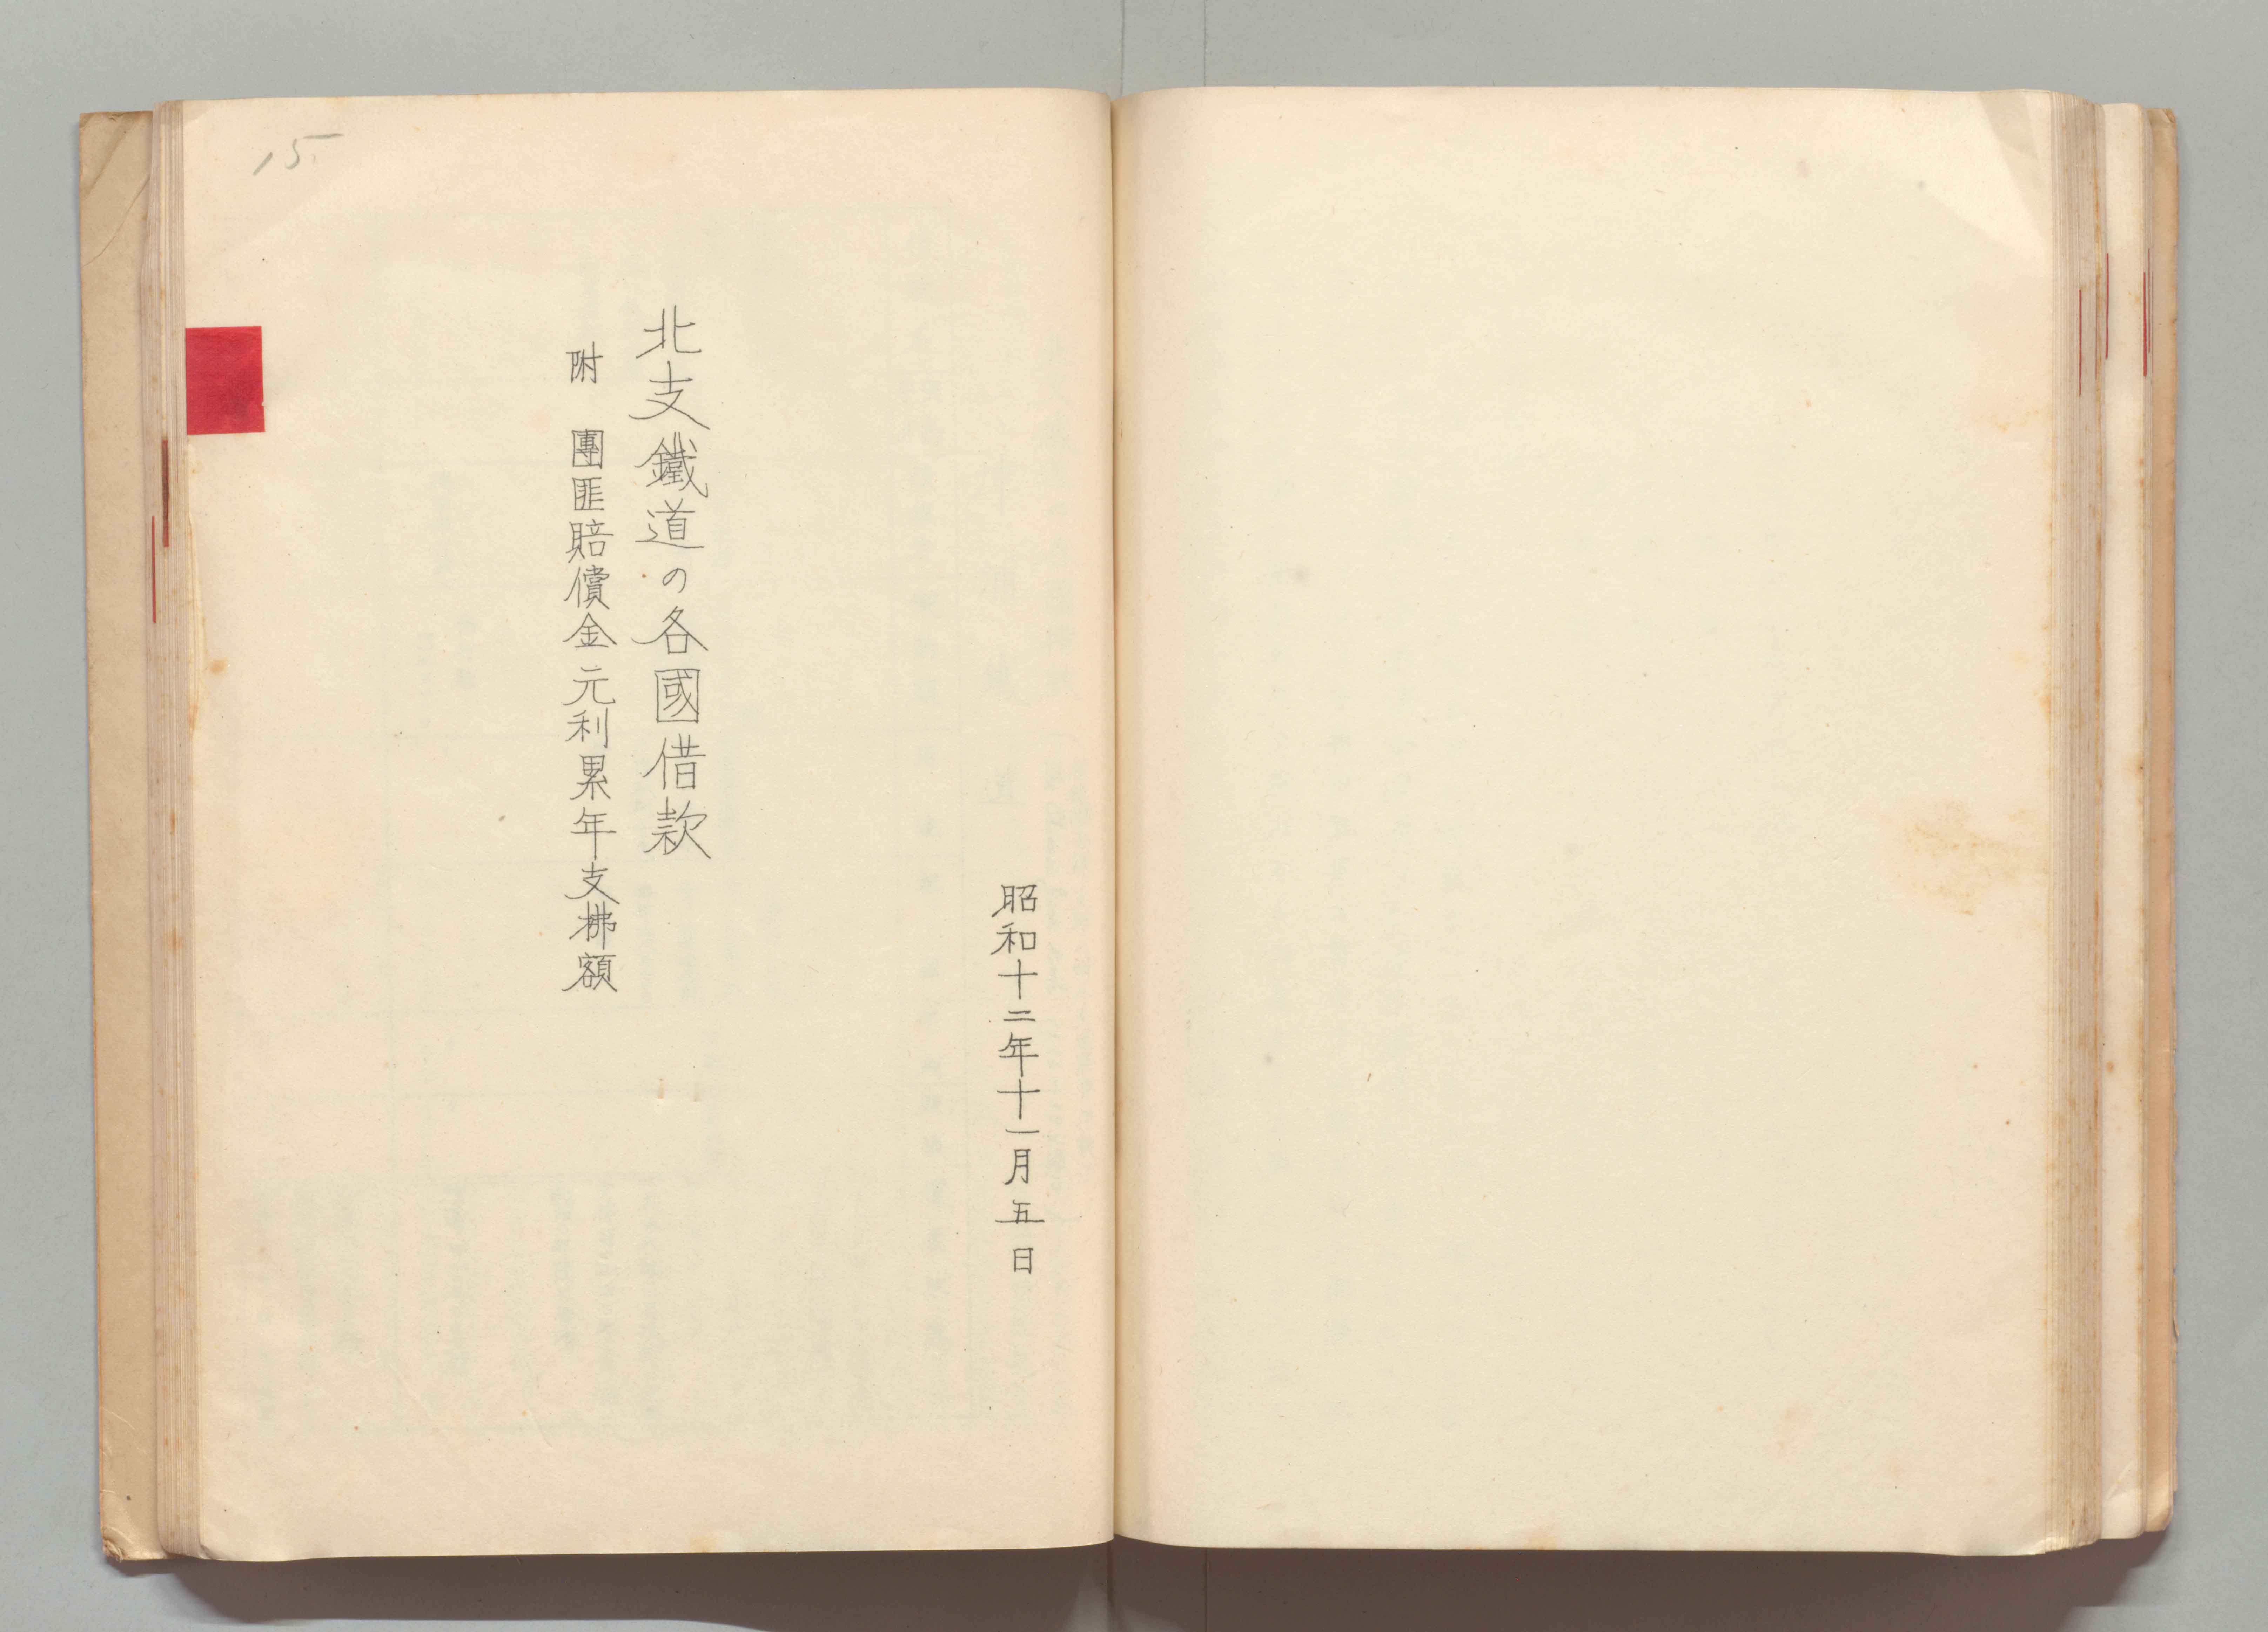 昭和十二年十一月五日
北支鐵道の各國借款
附 團匪賠償金元利累年支拂額
15.